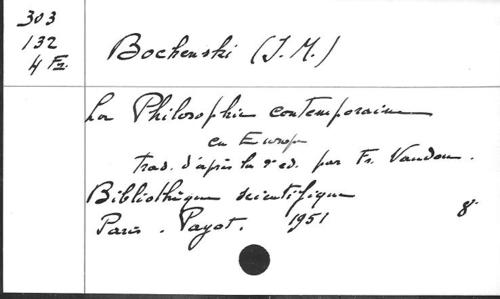 303
132
4 Fz.
Bochenski (J. M.)
La Philosophie contemporaine
en Europe
trad. d'après la 2e ed. par Fr. Vaudou.
Bibliothèque scientifique
Paris. Payot. 1951
8°